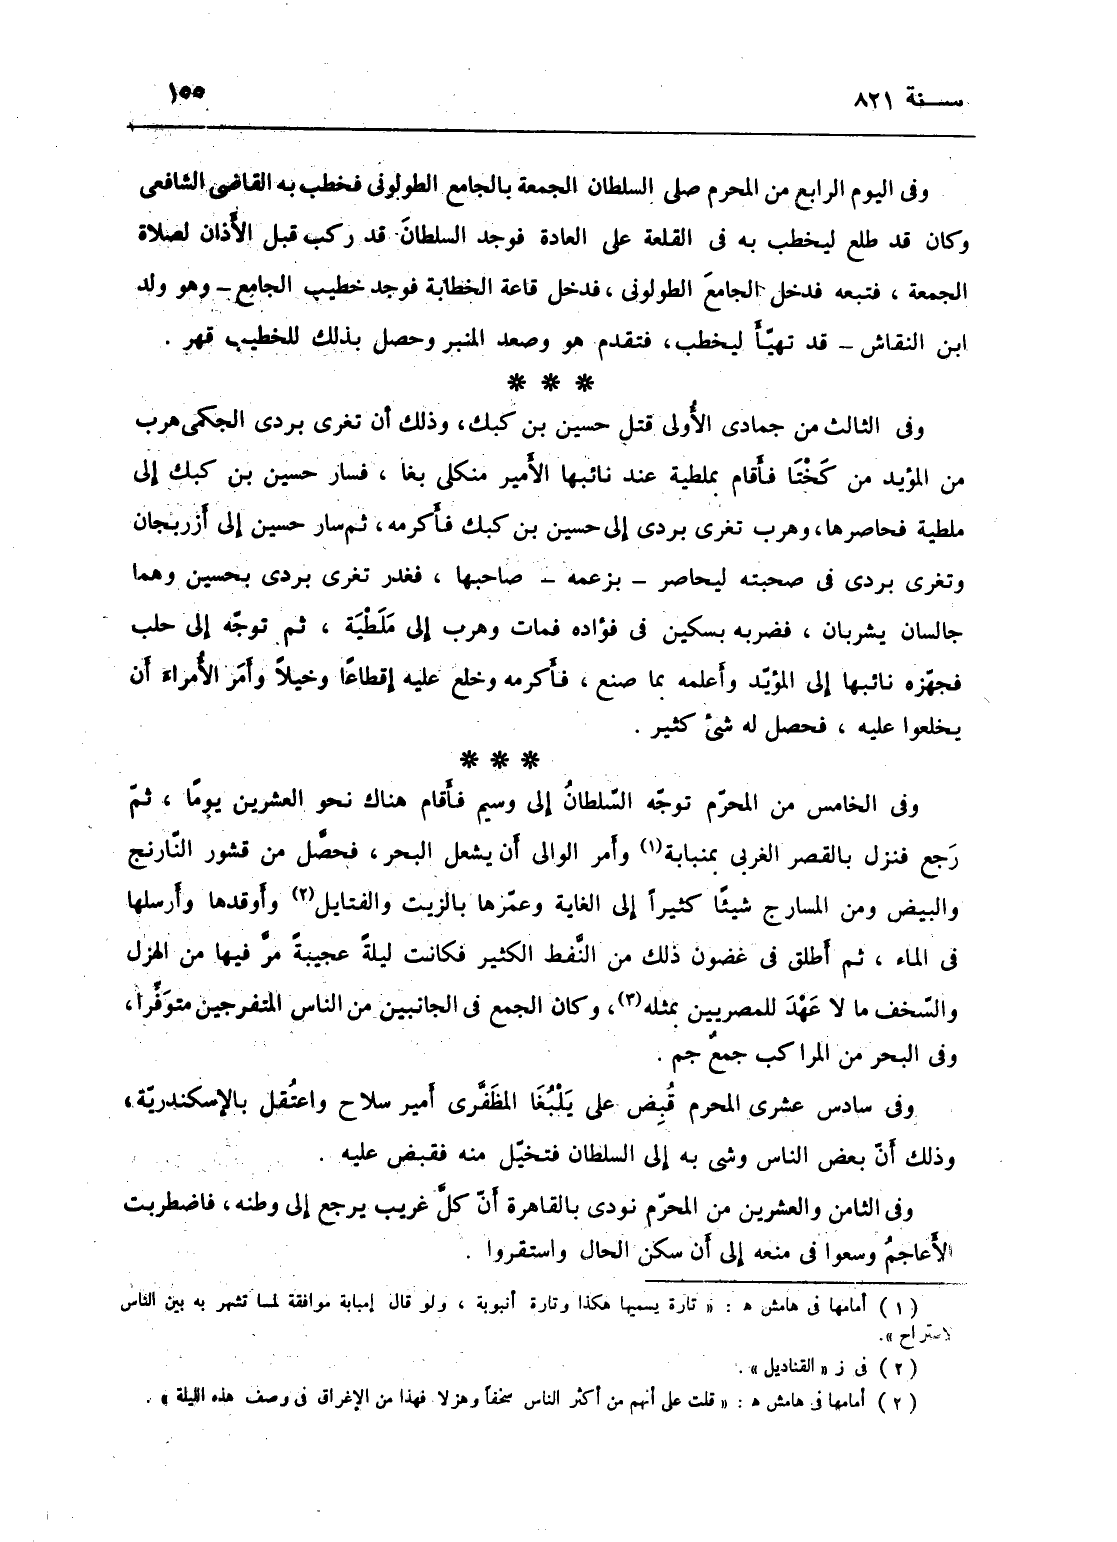 سنة ٨٢١
١٥٥
وفى اليوم الرابع من المحرم صلى السلطان الجمعة بالجامع الطولونى فخطب به القاضى الشافعى
وكان قد طلع ليخطب به فى القلعة على العادة فوجد السلطانَ قد ركب قبل الأَذان لصلاة
الجمعة ، فتبعه فدخل الجامعَ الطولونى ، فدخل قاعة الخطابة فوجد خطيب الجامع – وهو ولد
ابن النقاش – قد تهيّأَ ليخطب، فتقدم هو وصعد المنبر وحصل بذلك للخطيب قهر .
* * *
وفى الثالث من جمادى الأُولى قتل حسين بن كبك، وذلك أن تغرى بردى الجكمى هرب
من المؤيد من كَخْتَا فأَقام بملطية عند نائبها الأَمير منكلى بغا ، فسار حسين بن كبك إلى
ملطية فحاصرها، وهرب تغرى بردى إلى حسين بن كبك فأَكرمه، ثم سار حسين إلى أَزربجان
وتغرى بردى فى صحبته ليحاصر – بزعمه – صاحبها ، فغدر تغرى بردى بحسين وهما
جالسان يشربان ، فضربه بسكين فى فؤاده فمات وهرب إلى مَلَطْيَة ، ثم توجّه إلى حلب
فجهّزه نائبها إلى المؤيّد وأَعلمه بما صنع ، فأَكرمه وخلع عليه إقطاعًا وخيلاً وأَمَر الأُمراءَ أَن
يخلعوا عليه ، فحصل له شئ كثير .
* * *
وفى الخامس من المحرّم توجّه السّلطانُ إلى وسيم فأَقام هناك نحو العشرين يومًا ، ثمّ
رَجع فنزل بالقصر الغربى بمنبابة(١) وأَمر الوالى أَن يشعل البحر ، فحصَّل من قشور النّارنج
والبيض ومن المسارج شيئًا كثيراً إلى الغاية وعمّرها بالزيت والفتايل(٢) وأَوقدها وأَرسلها
فى الماء ، ثم أَطلق فى غضون ذلك من النَّفط الكثير فكانت ليلةً عجيبةً مرَّ فيها من الهزل
والسّخف ما لا عَهْدَ للمصريين بمثله(٣)، وكان الجمع فى الجانبين من الناس المتفرجين متوَفِّرا،
وفى البحر من المراكب جمعٌ جم .
وفى سادس عشرى المحرم قُبِض على يَلْبُغَا المظَفَّرى أَمير سلاح واعتُقل بالإسكندريّة،
وذلك أَنّ بعض الناس وشى به إلى السلطان فتخيّل منه فقبض عليه .
وفى الثامن والعشرين من المحرّم نودى بالقاهرة أَنّ كلَّ غريب يرجع إلى وطنه، فاضطربت
الأَعاجمُ وسعوا فى منعه إلى أَن سكن الحال واستقروا .
(١) أمامها فى هامش ه : « تارة يسميها هكذا وتارة أنبوبة ، ولو قال إمبابة موافقة لمسا تشهر به بين الناس
لاستراح ».
(٢) فى ز « القناديل » .
(٢) أمامها فى هامش ه : « قلت على أنهم من أكثر الناس سخفاً وهزلا فهذا من الإغراق فى وصف هذه الليلة » .